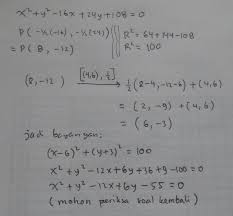 x² + y² - 16x + 24y + 108 = 0
P(-½(-16), -½(24))
= P(8, -12)
R² = 64 + 144 - 108
R² = 100
(8, -12) [(4,6), ½] → ½(8-4, -12-6) + (4,6)
= (2, -9) + (4,6)
= (6, -3)
jadi bayangan:
(x-6)² + (y+3)² = 100
x² + y² - 12x + 6y + 36 + 9 - 100 = 0
x² + y² - 12x + 6y - 55 = 0
(mohon periksa soal kembali)